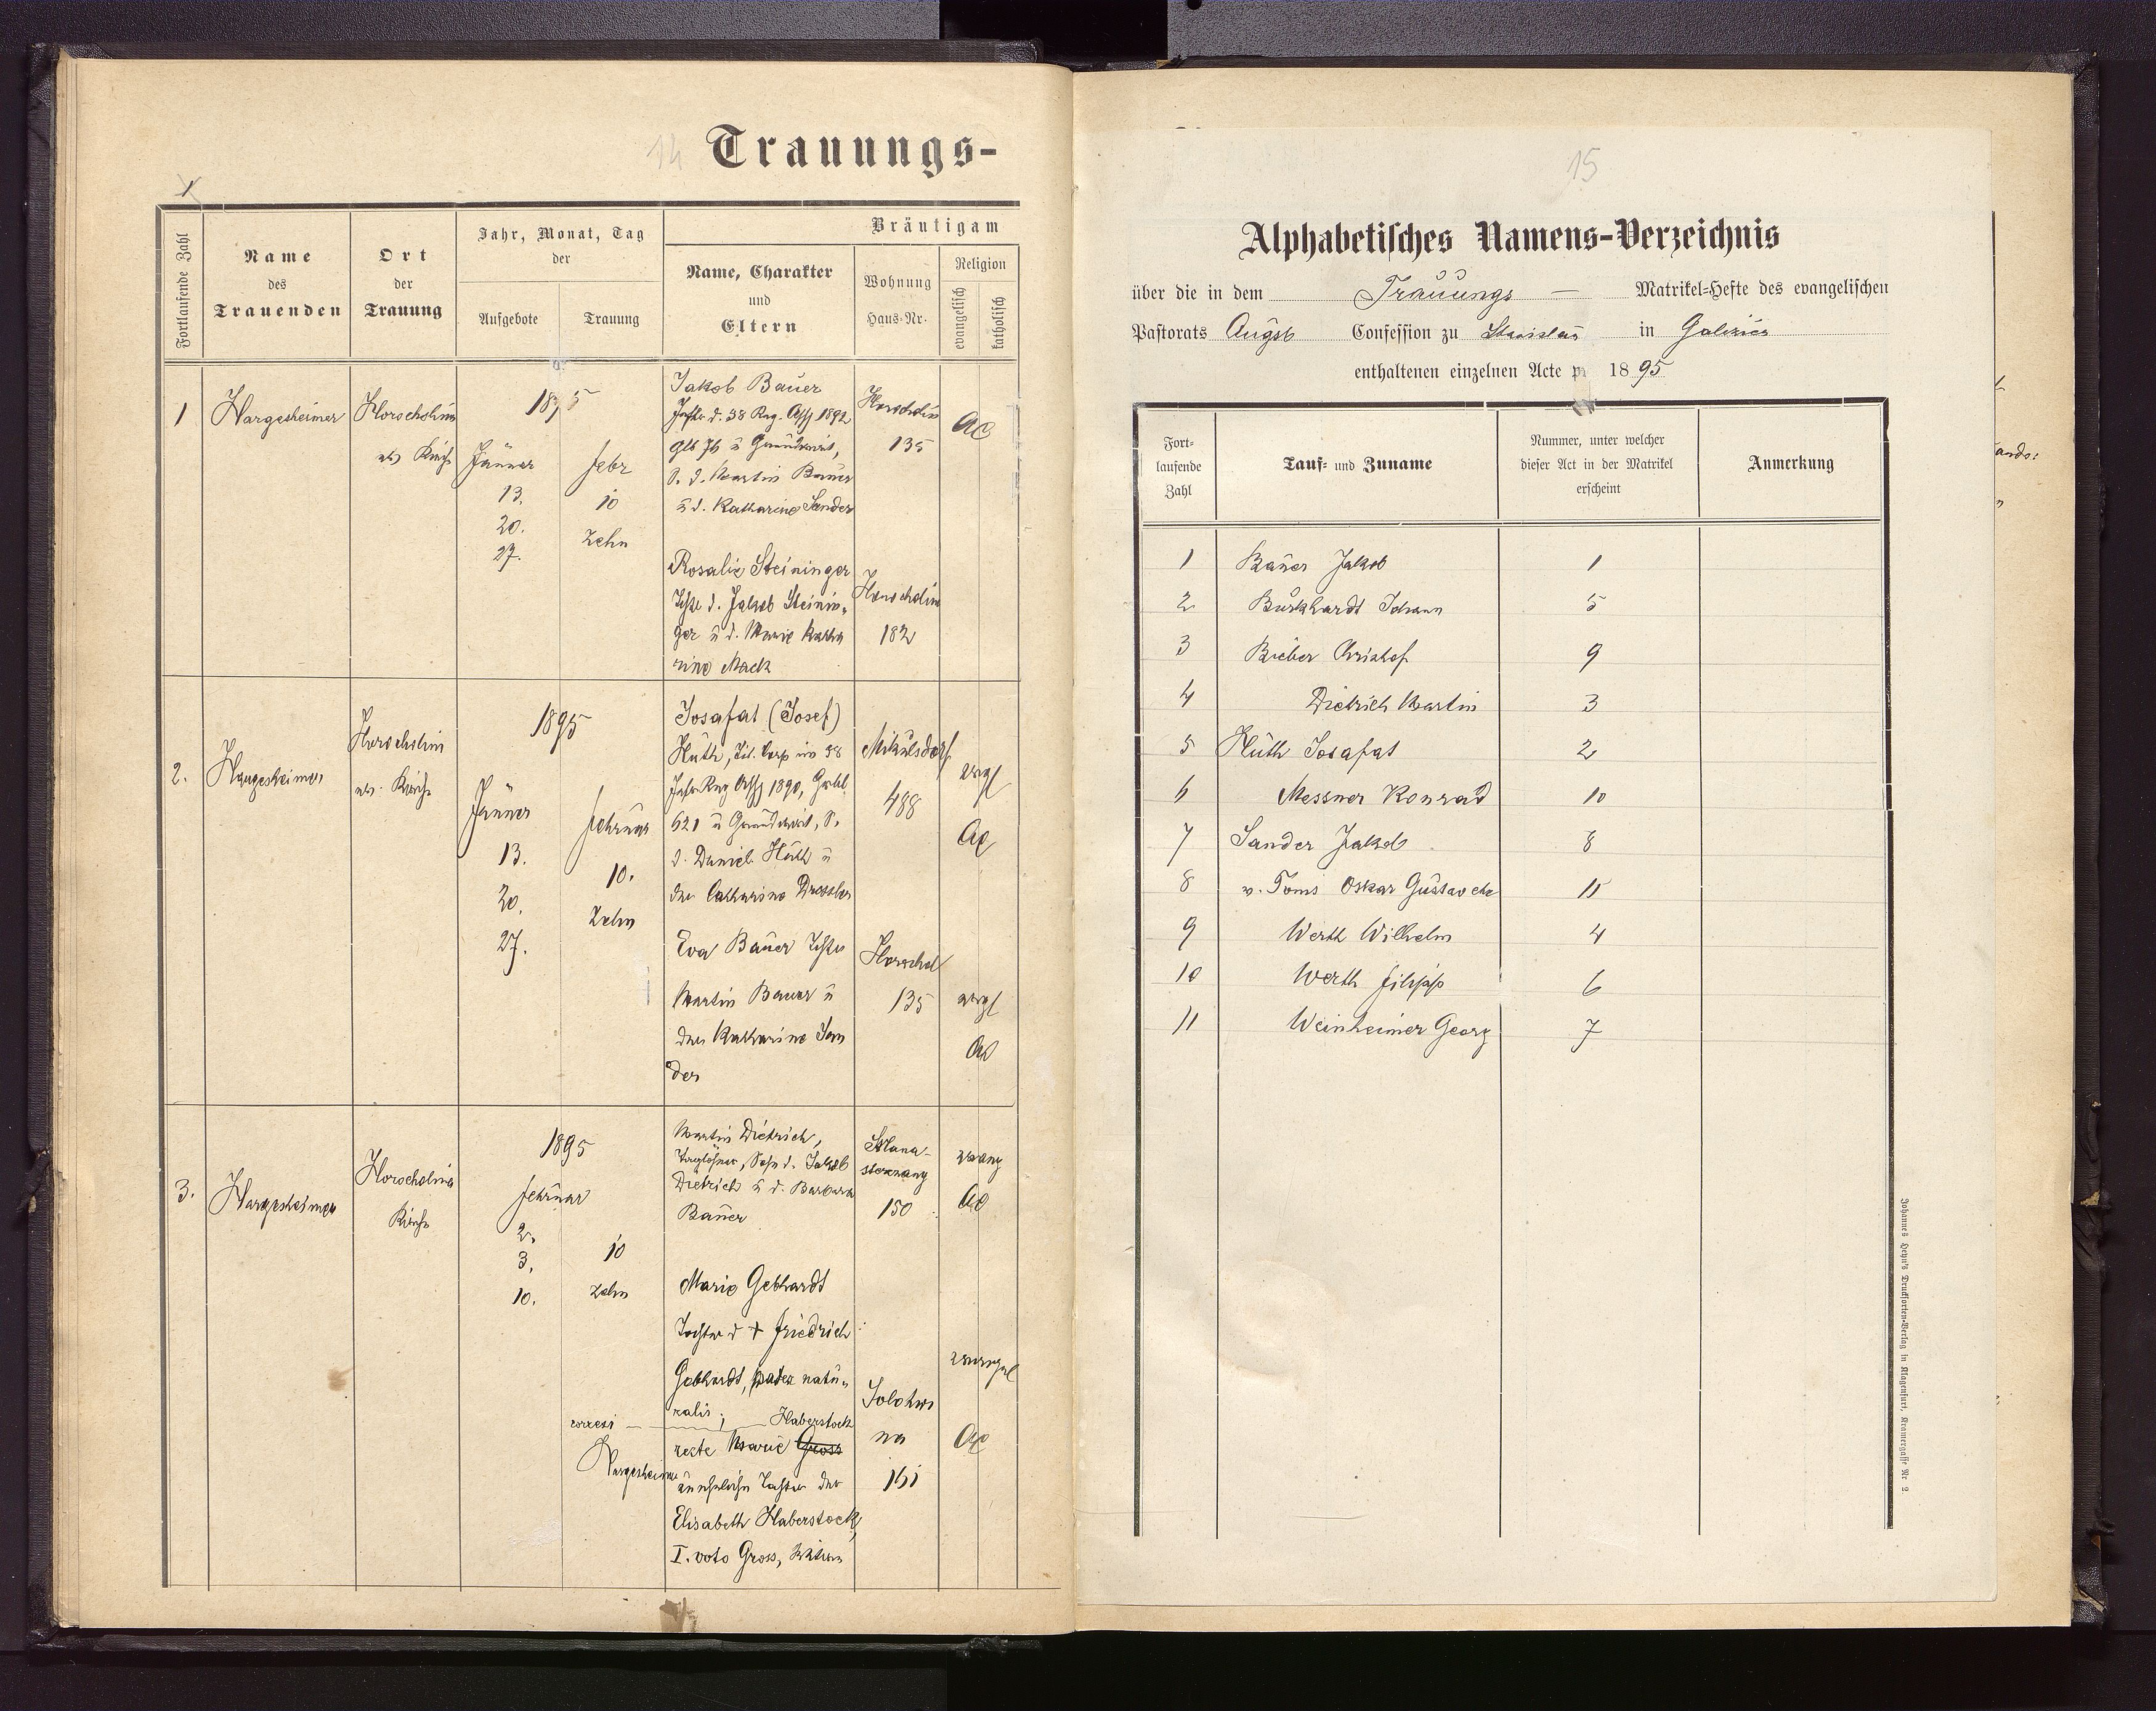 14
Trauungs-
1
Fortlaufende Zahl
Name
des
Trauenden
Ort
der
Trauung
Jahr, Monat, Tag
der
Aufgebote
Trauung
Bräutigam
Name, Charakter
und
Eltern
Wohnung
Haus-Nr.
Religion
evangelisch
katholisch
1
Hargesheimer
Horocholina
ev. Kirche
1895
Jänner
13.
20.
27.
Febr
10
zehn
Jakob Bauer
1892
u Grundwirt,
S. d. Martin Bauer
u d. Katharina Sander
Horocholin
135
AC
Rosalie Steininger
d. Jakob Steinin-
ger u d. Marie Katha
rina Mack
Horocholina
182
2.
Hargesheimer
Horocholina
ev. Kirche
1895
Jänner
13.
20.
27.
Februar
10.
Zehn
Josafat (Josef)
Hüth, Tit. Corp im 58
1890, Gbbl
621 u Grundwirt, S.
d. Daniel Hüth u
der Catharina Dressler
Mikulsdorf
488
evgl
AC
Eva Bauer
Martin Bauer u
der Katharina San
der
Horochol
135
evgl
AC
3.
Hargesheimer
Horocholina
Kirche
1895
Februar
2.
3.
10.
10
zehn
Martin Dietrich,
Taglöhner, Sohn d. Jakob
Dietrich u d. Barbara
Bauer
150
evang
AC
Marie Gebhardt
Tochter d + Friedrich
Gebhardt, pater natu-
ralis;
correxi — Haberstock
Hargesheimer
recte Marie Gross
uneheliche Tochter der
Elisabeth Haberstock,
I. voto Gross, Witwe
Solotwi
na
161
evangel
AC
15
Alphabetisches Namens-Verzeichnis
über die in dem Trauungs — Matrikel-Hefte des evangelischen
Pastorats Augsb Confession zu Stanislau in Galizien
enthaltenen einzelnen Acte pr 1895
Fort-
laufende
Zahl
Tauf- und Zuname
Nummer, unter welcher
dieser Act in der Matrikel
erscheint
Anmerkung
1 Bauer Jakob 1
2 Burkhardt Johann 5
3 Bieber Christof 9
4 Dietrich Martin 3
5 Hüth Josafat 2
6 Messner Konrad 10
7 Sander Jakob 8
8 v. Toms Oskar Gustav etc 11
9 Werth Wilhelm 4
10 Werth Filipp 6
11 Weinheimer Georg 7
Johannes Heyn's Drucksorten-Verlag in Klagenfurt, Kramergasse Nr 2